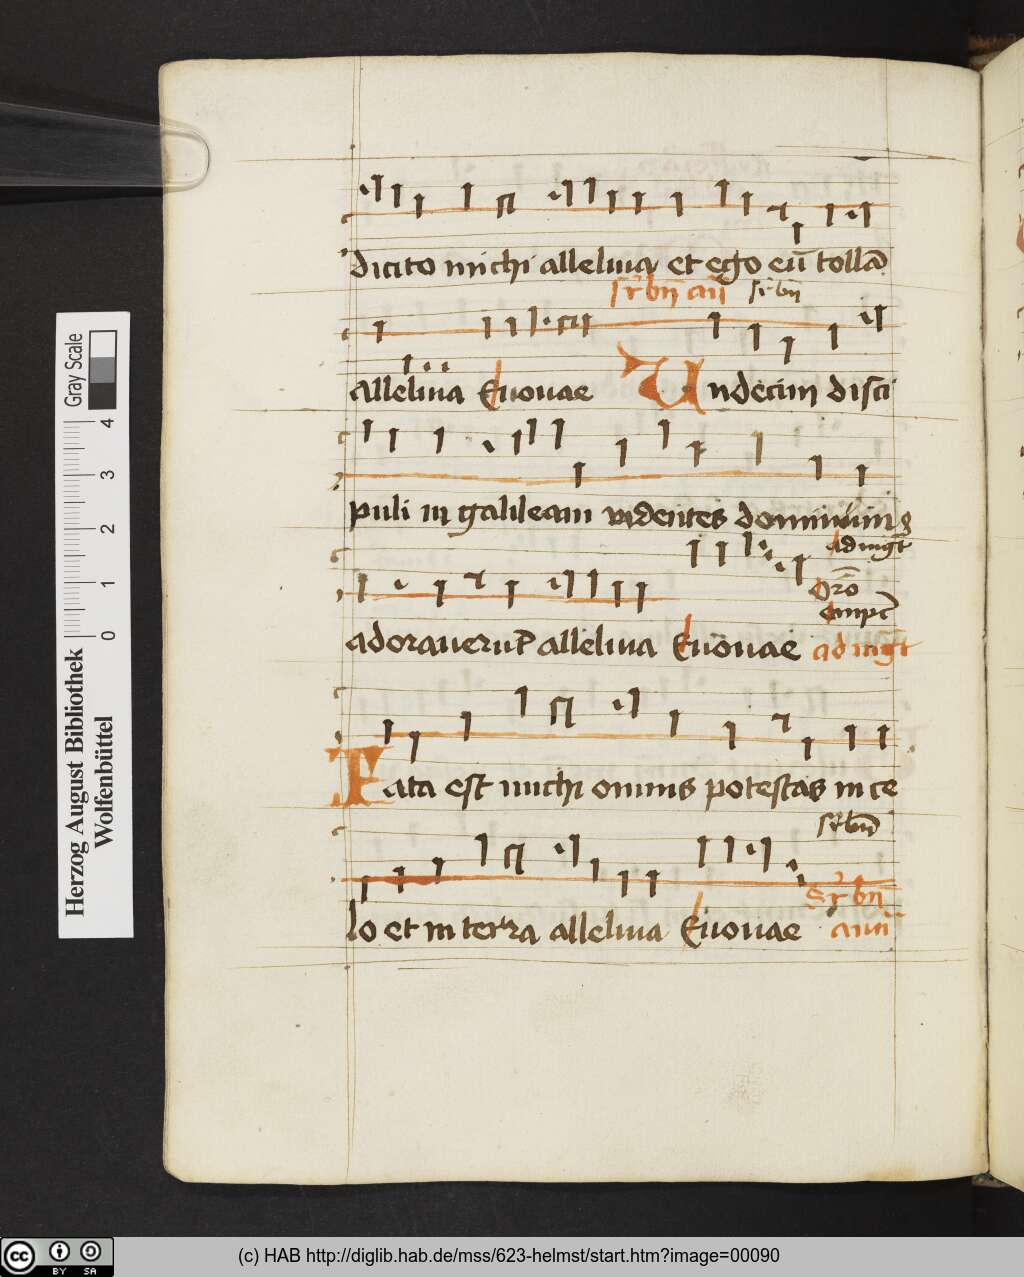 dicito michi alleluia et ego eū tollā
sr̄ bn̄ añ sr̄ bn̄
alleluia Euouae Undecim disci
puli in galileam videntes dominum
ad mgͭ
adorauerūt alleluia Euouae ad mgͭ
Data est michi omnis potestas in ce
sr̄ bn̄
lo et in terra alleluia Euouae
Sr̄ bn̄
Herzog August Bibliothek
Wolfenbüttel
Gray Scale
0 1 2 3 4
cc BY SA
(c) HAB http://diglib.hab.de/mss/623-helmst/start.htm?image=00090